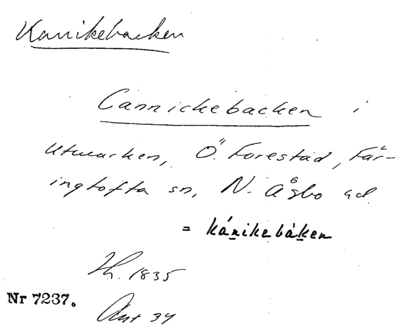 Kanikebacken
Cannickebacken i
Utmarken, Ö. Forestad, Fär-
ingtofta sn, N. Åsbo hd.
= kánikebàken
Th. 1835
Nr 7237.
Ant 34